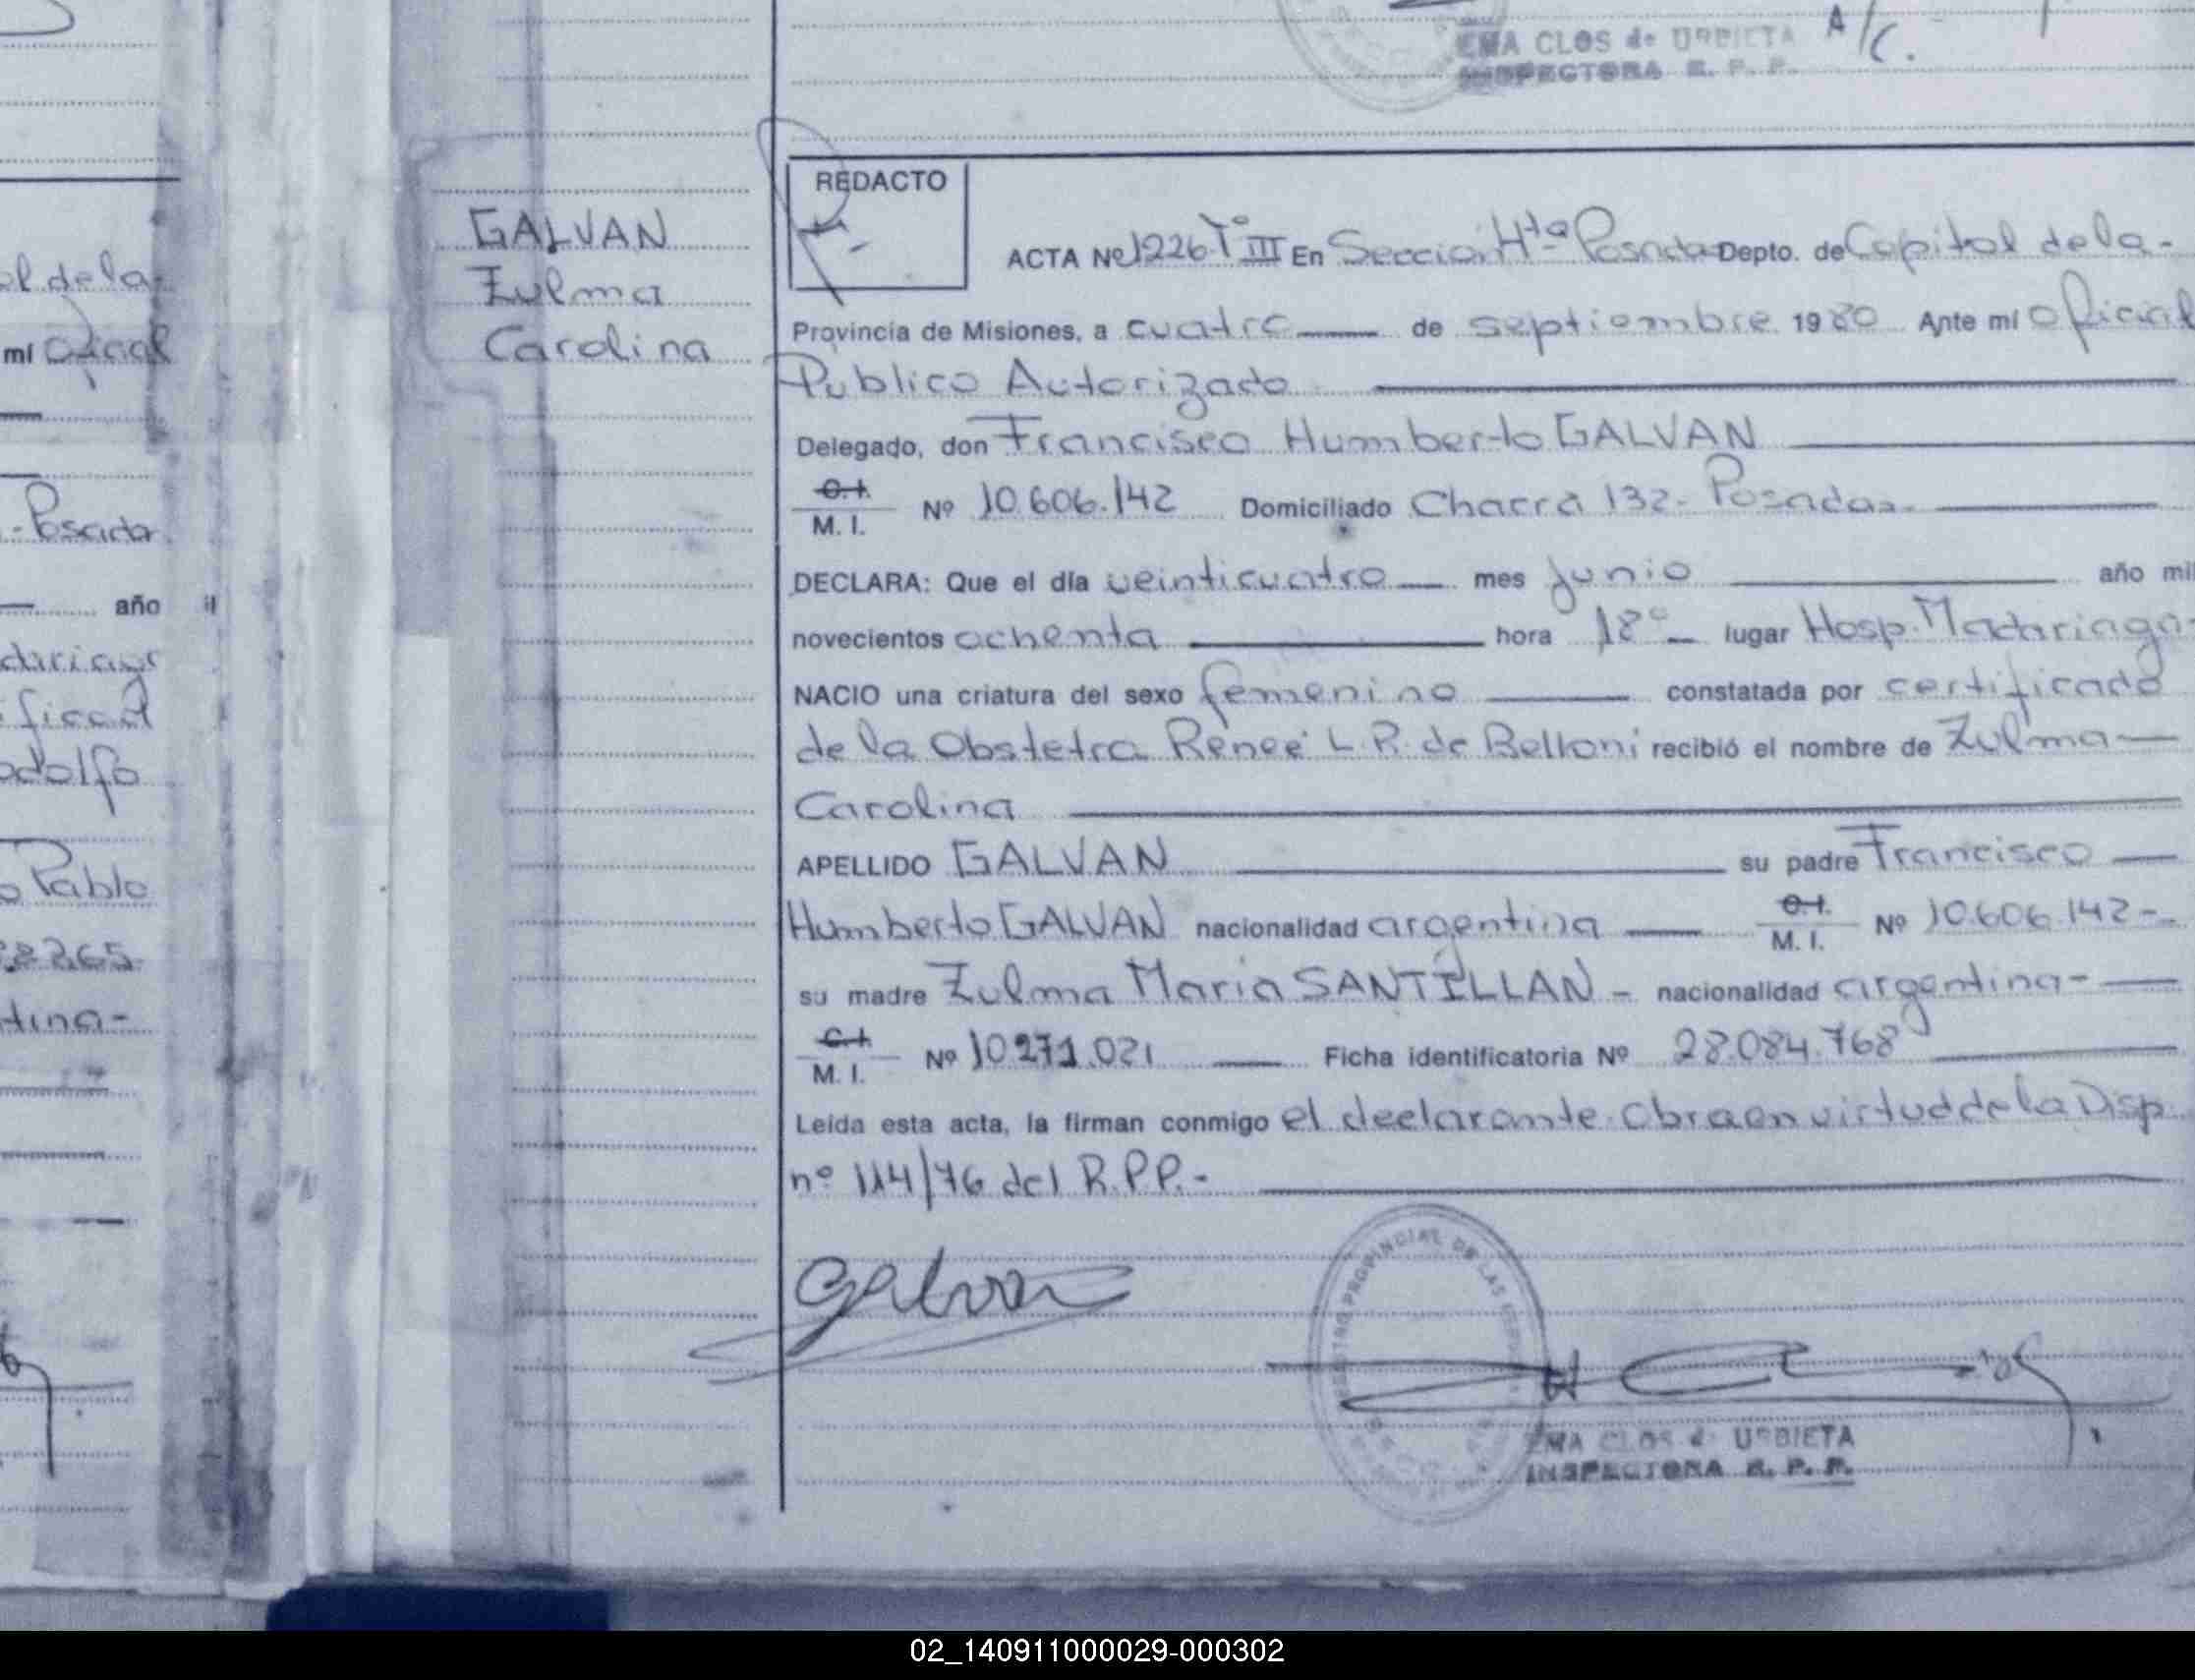 EMA CLOS de URBIETA A/C.
INSPECTORA R. P. P.
al de la-
mi Oficial
-Posada
año
Pablo
tina-
GALVAN
Zulma
Carolina
REDACTO
ACTA Nº 1226 Tº III En Sección 4ta Posadas Depto. de Capital de la-
Provincia de Misiones, a cuatro de septiembre 1980 Ante mi Oficial
Publico Autorizado
Delegado, don Francisco Humberto GALVAN
C. I.
M. I. Nº 10.606.142 Domiciliado Chacra 132- Posadas-
DECLARA: Que el día veinticuatro mes junio año mil
novecientos ochenta hora 18º lugar Hosp. Madariaga-
NACIO una criatura del sexo femenino constatada por certificado
de la Obstetra Reneé L. R. de Belloni recibió el nombre de Zulma
Carolina
APELLIDO GALVAN su padre Francisco
Humberto GALVAN nacionalidad argentina C. I. M. I. Nº 10.606.142-
su madre Zulma Maria SANTILLAN - nacionalidad argentina-
C. I.
M. I. Nº 10.271.021 Ficha identificatoria Nº 28.084.768
Leída esta acta, la firman conmigo el declarante. Obra en virtud de la Disp.
nº 114/76 del R.P.P.-
Galvan
REGISTRO PROVINCIAL DE LAS
EMA CLOS de URBIETA
INSPECTORA R. P. P.
02_140911000029-000302